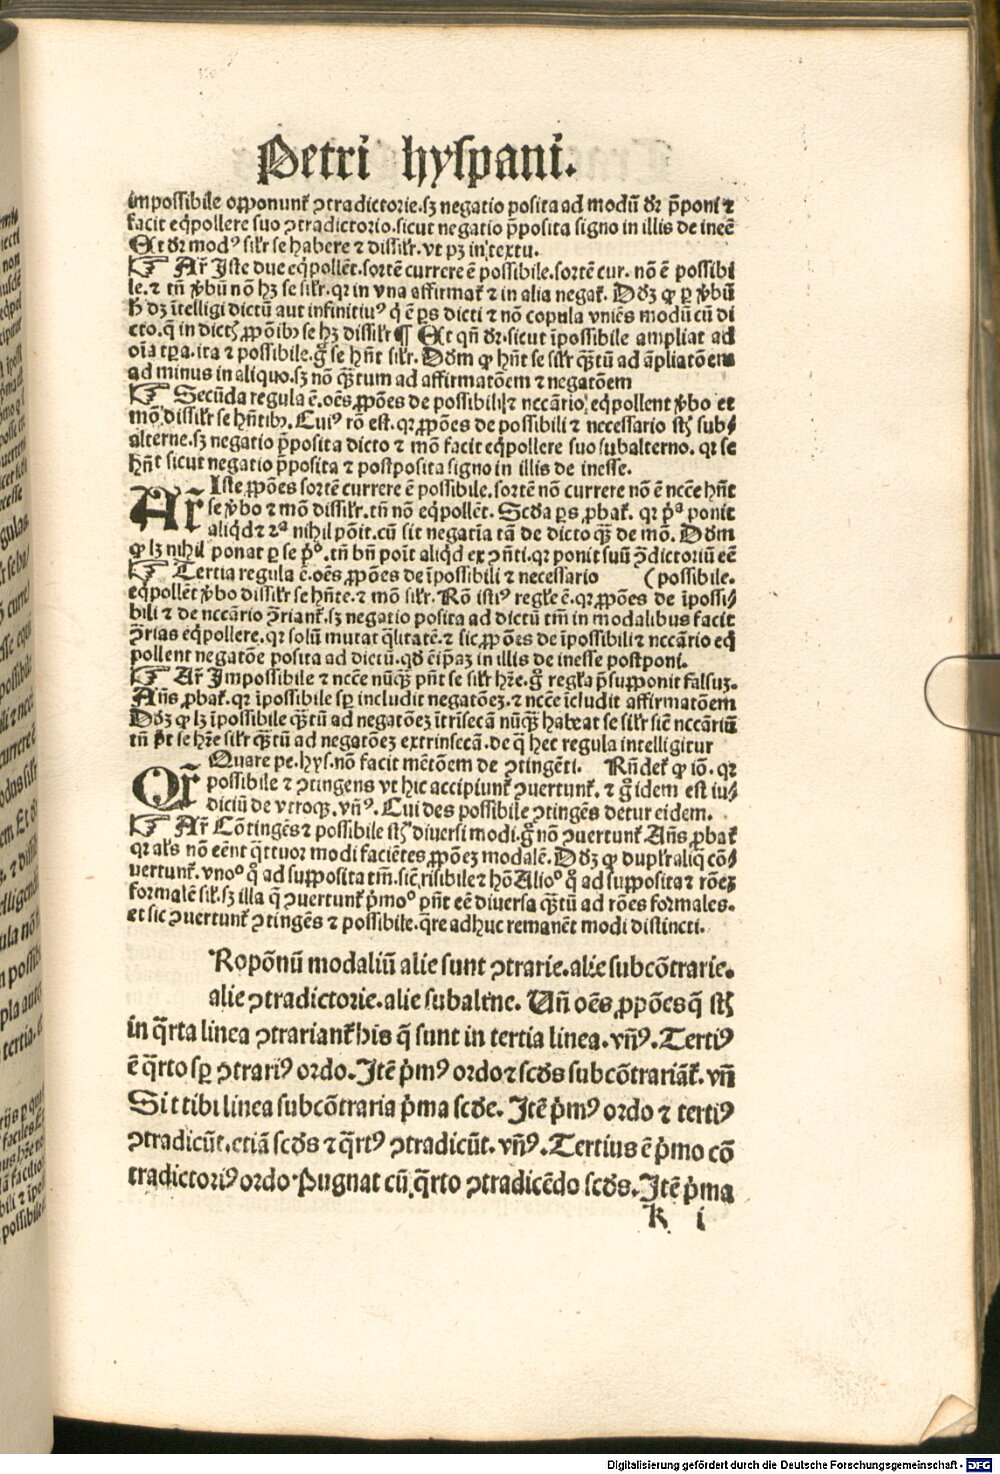 Petri hyspani.
impossibile opponunt᷑ ꝯtradictorie.sꝫ negatio posita ad modū dr̄ p̄poni ⁊
facit eq̄pollere suo ꝯtradictorio.sicut negatio p̄posita signo in illis de ineē
Et dr̄ modꝰ silr̄ se habere ⁊ dissilr̄.vt pꝫ in textu.
☞ Ar̄ Iste due eq̄pollēt.sortē currere ē possibile.sortē cur. nō ē possibi
le.⁊ tn̄ v̄bū nō hꝫ se silr̄.qr in vna affirmat᷑ ⁊ in alia negat᷑. Dōꝫ ꝙ ꝑ v̄bū
h̄ dꝫ ītelligi dictū aut infinitiuꝰ q̇ ē ꝑs dicti ⁊ nō copula vniēs modū cū di
cto.q̄ in dictꝭ ꝓpōibꝰ se hꝫ dissilr̄ ¶ Et qn̄ dr̄.sicut īpossibile ampliat ad
oīa tꝑa.ita ⁊ possibile.g̊ se hn̄t silr̄. Dōm ꝙ hn̄t se silr̄ qꝫtū ad āpliatōem
ad minus in aliquo.sꝫ nō qꝫtum ad affirmatōem ⁊ negatōem
☞ Secūda regula ē.oēs ꝓpōes de possibili ⁊ nccārio eq̄pollent v̄bo et
mō dissilr̄ se hn̄tibꝰ. Cuiꝰ rō est.qr ꝓpōes de possibili ⁊ necessario st̄ sub/
alterne.sꝫ negatio p̄posita dicto ⁊ mō facit eq̄pollere suo subalterno. qr se
hn̄t sicut negatio p̄posita ⁊ postposita signo in illis de inesse.
Ar̄ Iste ꝓpōes sortē currere ē possibile.sortē nō currere nō ē nccē hn̄t
se v̄bo ⁊ mō dissilr̄. tn̄ nō eq̄pollēt. Scd̄a ꝑs ꝓbat᷑. qr pᵃ ponit
aliqd̄ ⁊ 2ᵃ nihil pōit.cū sit negatīa tā de dicto qꝫ de mō. Dōm
ꝙ lꝫ nihil ponat ꝑ se pº. tn̄ bn̄ pōit aliqd̄ ex ꝯn̄ti.qr ponit suū ꝯdictoriū eē
☞ Tertia regula ē.oēs ꝓpōes de īpossibili ⁊ necessario (possibile.
eq̄pollēt v̄bo dissilr̄ se hn̄te.⁊ mō silr̄. Rō istiꝰ regle ē.qr ꝓpōes de īpossi/
bili ⁊ de nccārio ꝯriant᷑.sꝫ negatio posita ad dictū tm̄ in modalibus facit
ꝯrias eq̄pollere. qr solū mutat q̄litatē. ⁊ sic ꝓpōes de īpossibili ⁊ nccārio eq̄
pollent negatōe posita ad dictū. in illis de inesse postponi.
☞ Ar̄ Impossibile ⁊ nccē nūqꝫ pn̄t se silr̄ hr̄e.g̊ regl̄a p̄supponit falsuꝫ.
An̄s ꝓbat᷑. qr īpossibile sp includit negatōeꝫ.⁊ nccē īcludit affirmatōem
Dōꝫ ꝙ lꝫ īpossibile qꝫtū ad negatōeꝫ ītrīsecā nūqꝫ habeat se silr̄ sic̄ nccāriū
tn̄ pt se hr̄e silr̄ qꝫtū ad negatōeꝫ extrinsecā.de q̄ hec regula intelligitur
Qr̄ Quare pe.hys.nō facit mētōem de ꝯtingēti. Rn̄det᷑ ꝙ iō. qr
possibile ⁊ ꝯtingens vt hic accipiunt᷑ ꝯuertunt᷑. ⁊ g̊ idem est iu/
diciū de vtroqꝫ. vn̄ꝰ. Cui des possibile ꝯtingēs detur eidem.
☞ Ar̄ Cōtingēs ⁊ possibile st̄ diuersi modi.g̊ nō ꝯuertunt᷑ An̄s ꝓbat᷑
qr al̄s nō eēnt q̄ttuor modi faciētes ꝓpōeꝫ modalē. Dōꝫ ꝙ duplr̄ aliq̄ cō/
uertunt᷑. vnoº q̊ ad supposita tm̄. sic̄ risibile ⁊ hō Alioº q̊ ad supposita ⁊ rōeꝫ
formalē sil̄. sꝫ illa q̄ ꝯuertunt᷑ p̄moº pn̄t eē diuersa qꝫtū ad rōes formales.
et sic ꝯuertunt᷑ ꝯtingēs ⁊ possibile. q̄re adhuc remanēt modi distincti.
Ropōnū modaliū alie sunt ꝯtrarie.alie subcōtrarie.
alie ꝯtradictorie.alie subalt̄ne. Un̄ oēs ꝓpōes q̄ st̄
in q̄rta linea ꝯtrariant᷑ his q̄ sunt in tertia linea. vn̄ꝰ. Tertiꝰ
ē q̄rto sꝑ ꝯtrariꝰ ordo. Itē p̄mꝰ ordo ⁊ scd̄s subcōtrariāt᷑. vn̄
Sit tibi linea subcōtraria p̄ma scd̄e. Itē p̄mꝰ ordo ⁊ tertiꝰ
ꝯtradicūt.etiā scd̄s ⁊ q̄rtꝰ ꝯtradicūt. vn̄ꝰ. Tertius ē p̄mo cō
tradictoriꝰ ordo Pugnat cū q̄rto ꝯtradicēdo scd̄s. Itē p̄ma
k i
Digitalisierung gefördert durch die Deutsche Forschungsgemeinschaft - DFG